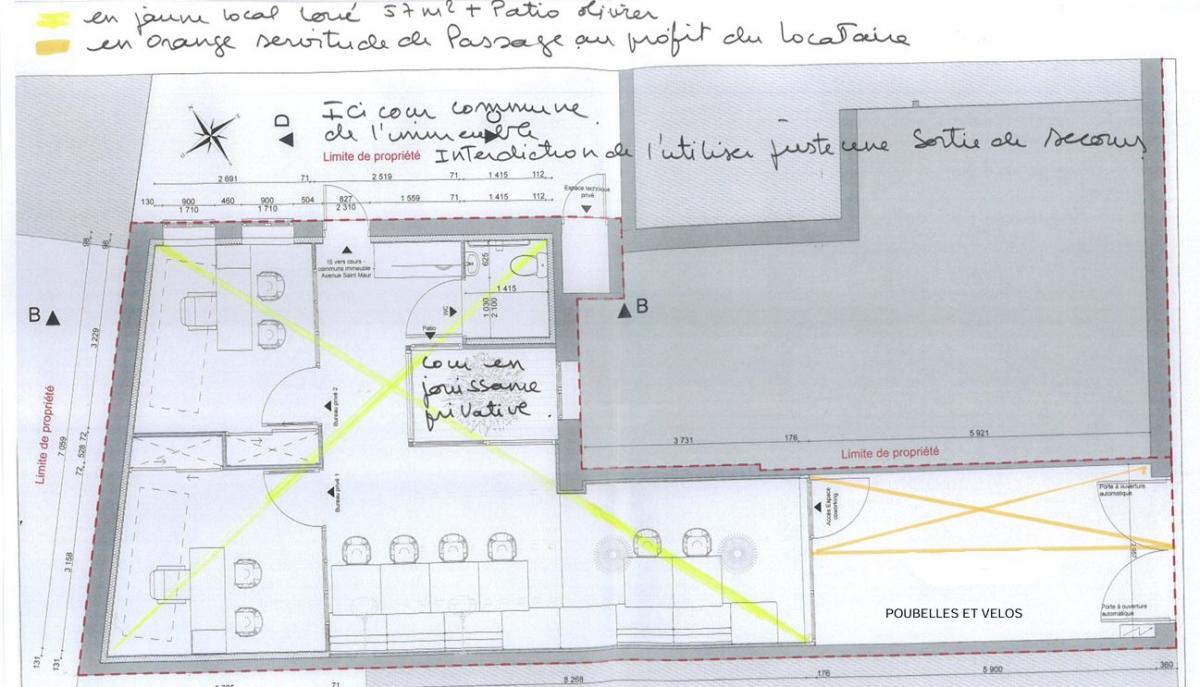 en jaune local loué 57m² + Patio olivier
en orange servitude de Passage au profit du locataire
Ici cour commune
de l'immeuble
D
Limite de propriété
Interdiction de l'utiliser juste une Sortie de secours
2 691 71 2 519 71 1 415 112
130 900 460 900 504 827 1 559 71 1 415 112
1 710 1 710 2 310
Espace technique
privé
98 98
IS vers cours -
communs immeuble -
Avenue Saint Maur
625
1 415
1 030
2 100
WC
Patio
B
B
3 229
Limite de propriété
7 059
528 72
72
3 158
131 131
Cour en
jouissance
privative.
Bureau privé 2
Bureau privé 1
3 731 176 5 921
Limite de propriété
Accès Espace
coworking
Porte à ouverture
automatique
Porte à ouverture
automatique
POUBELLES ET VELOS
71 8 268 176 5 900 360